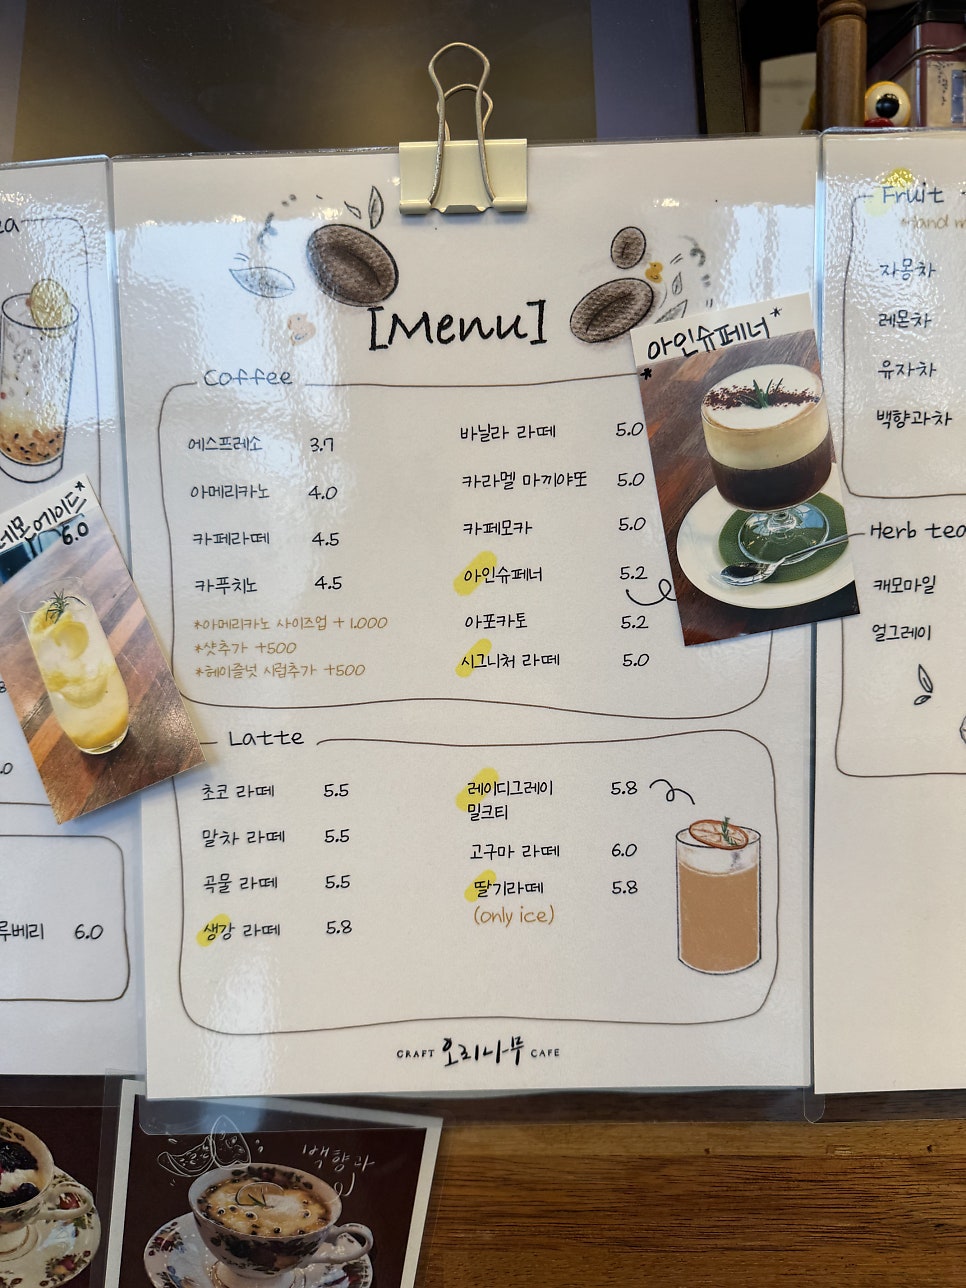 [Menu]
Coffee
에스프레소 3.7
아메리카노 4.0
카페라떼 4.5
카푸치노 4.5
*아메리카노 사이즈업 +1,000
*샷추가 +500
*헤이즐넛 시럽추가 +500
바닐라 라떼 5.0
카라멜 마끼야또 5.0
카페모카 5.0
아인슈페너 5.2
아포카토 5.2
시그니처 라떼 5.0
*아인슈페너*
Latte
초코 라떼 5.5
말차 라떼 5.5
곡물 라떼 5.5
생강 라떼 5.8
레이디그레이 5.8
밀크티
고구마 라떼 6.0
딸기라떼 5.8
(only ice)
CRAFT 오리나무 CAFE
레몬에이드*
6.0
루베리 6.0
Fruit
*Hand m
자몽차
레몬차
유자차
백향과차
Herb tea
캐모마일
얼그레이
백향과